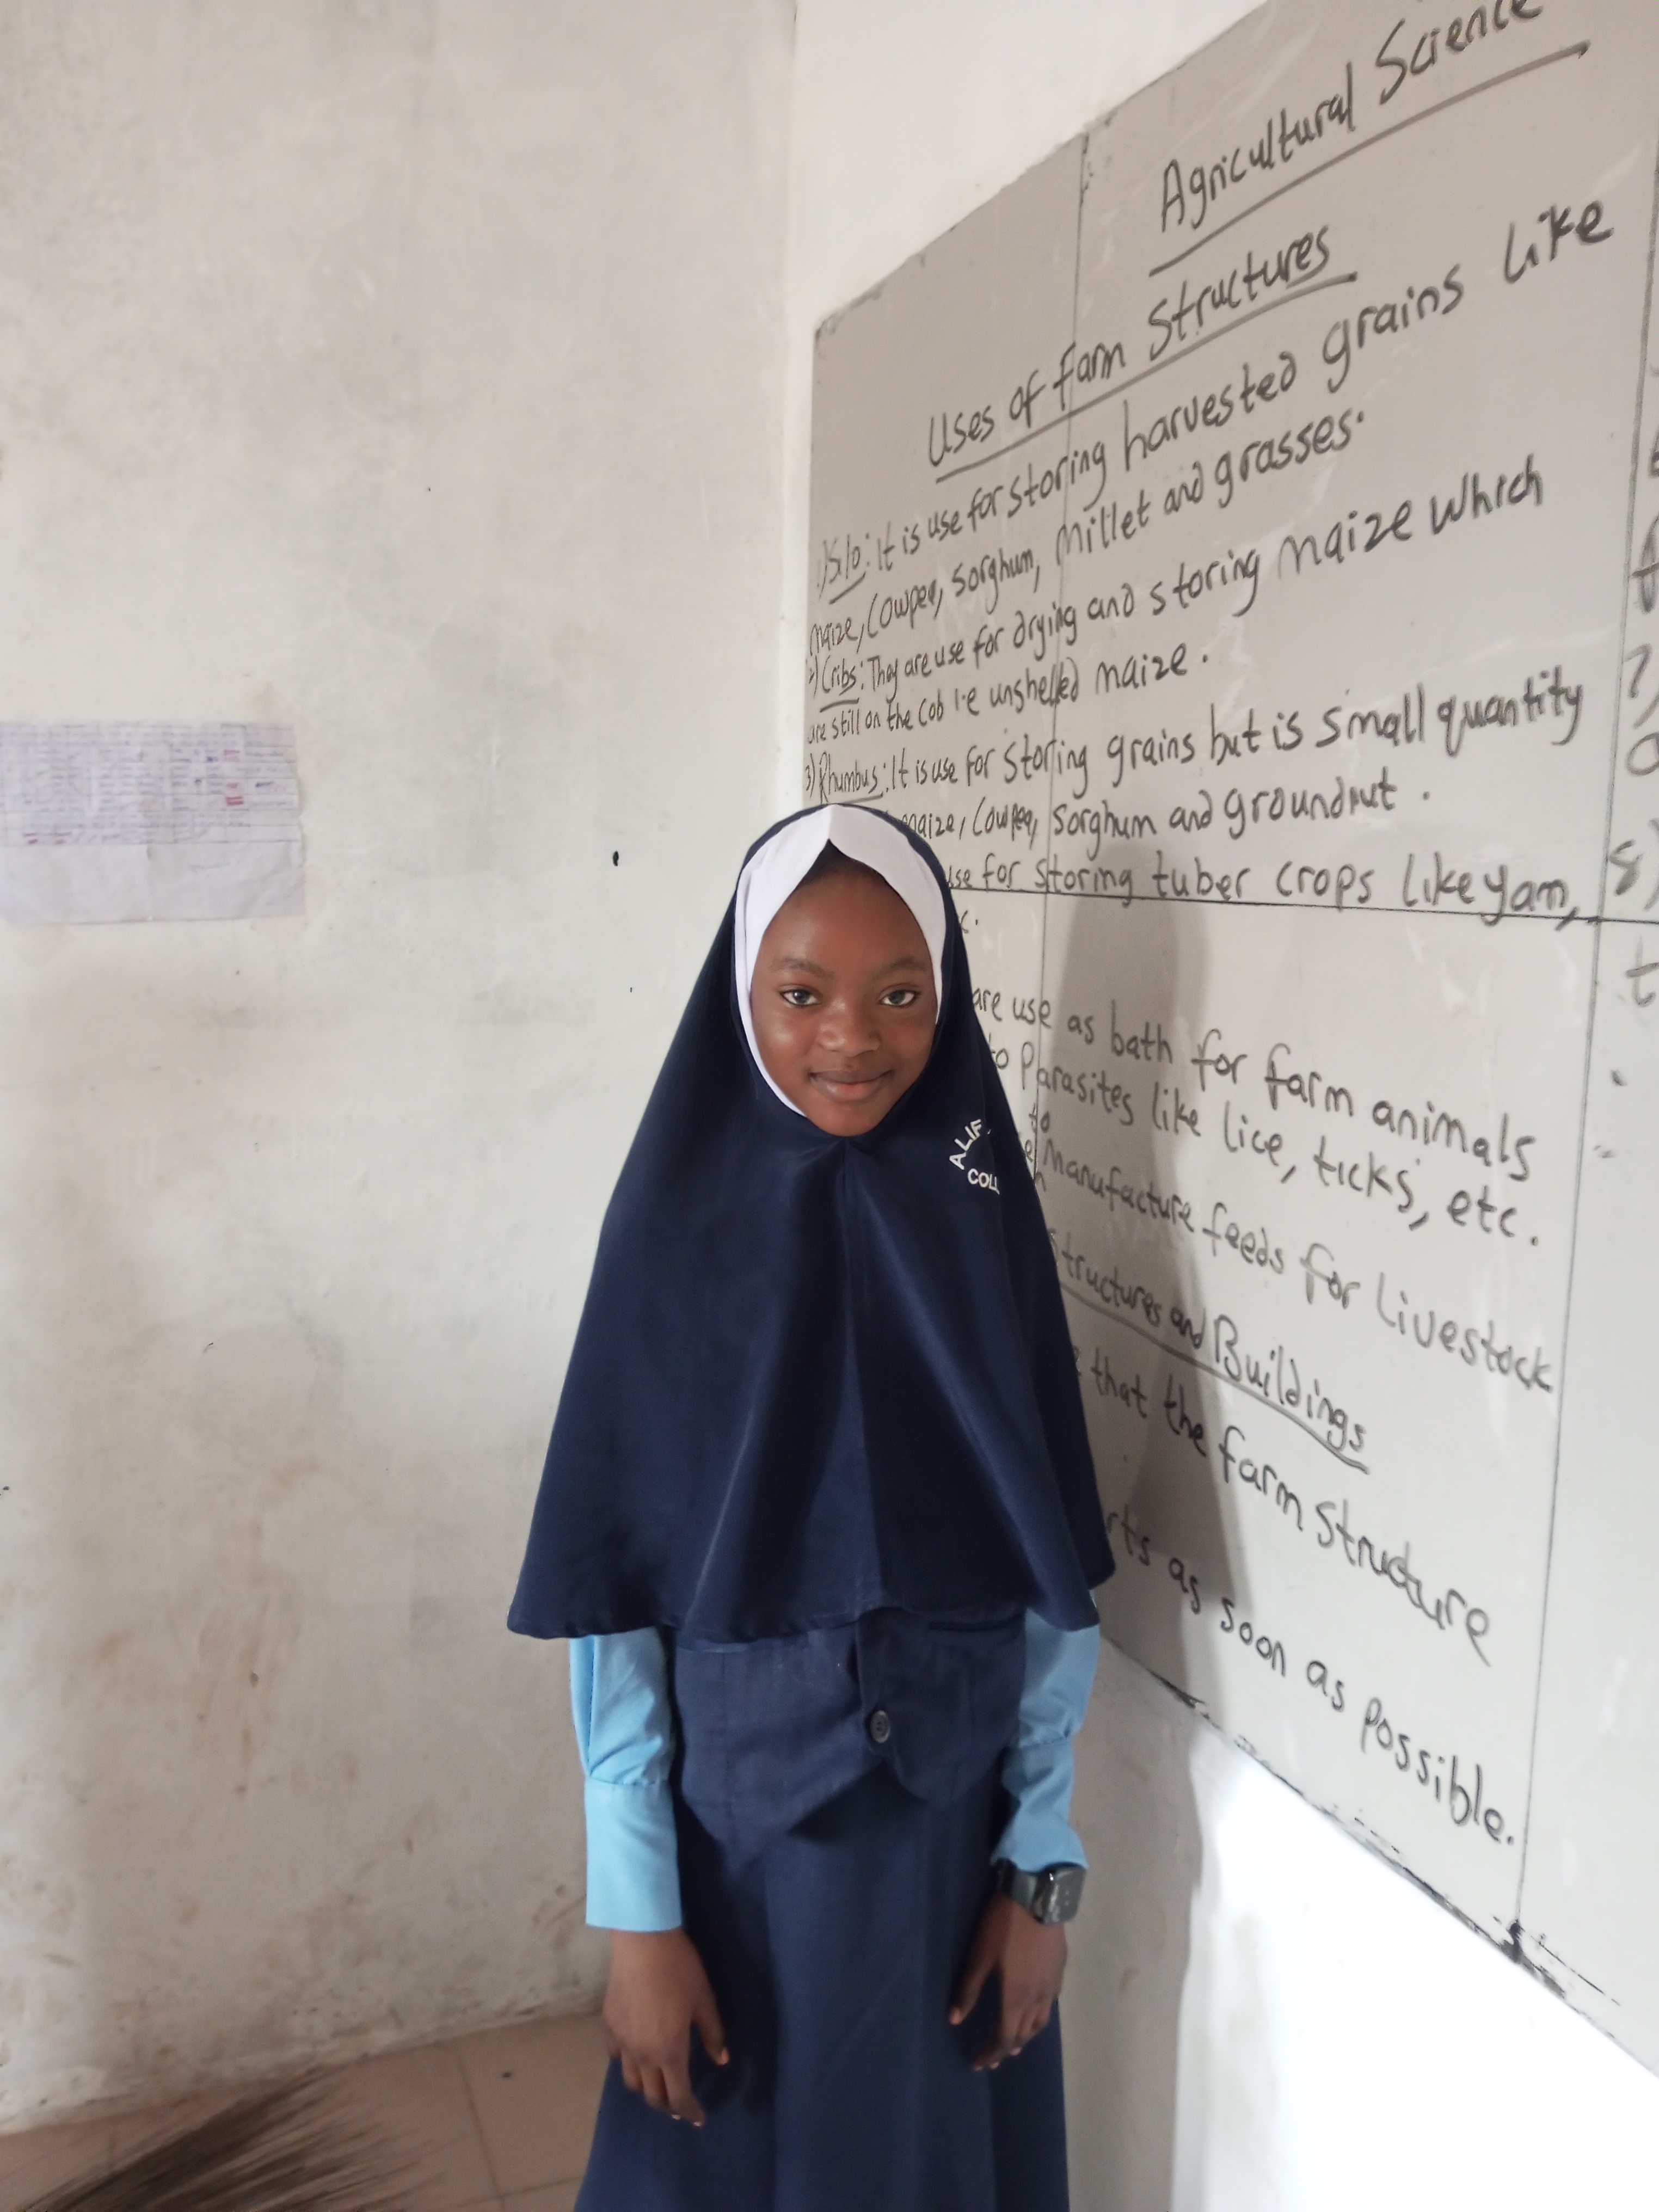 Agricultural Science
Uses of farm Structures
1) Silo: It is use for storing harvested grains like
maize, Cowpea, Sorghum, Millet and grasses.
2) Cribs: They are use for drying and storing maize which
are still on the cob i.e unshelled maize.
3) Rhumbus: It is use for storing grains but is small quantity
maize, Cowpea, Sorghum and groundnut.
use for storing tuber crops like yam,
are use as bath for farm animals
to Parasites like lice, ticks, etc.
to
Manufacture feeds for Livestock
Structures and Buildings
that the farm structure
as soon as possible.
8)
ALIF
COLL